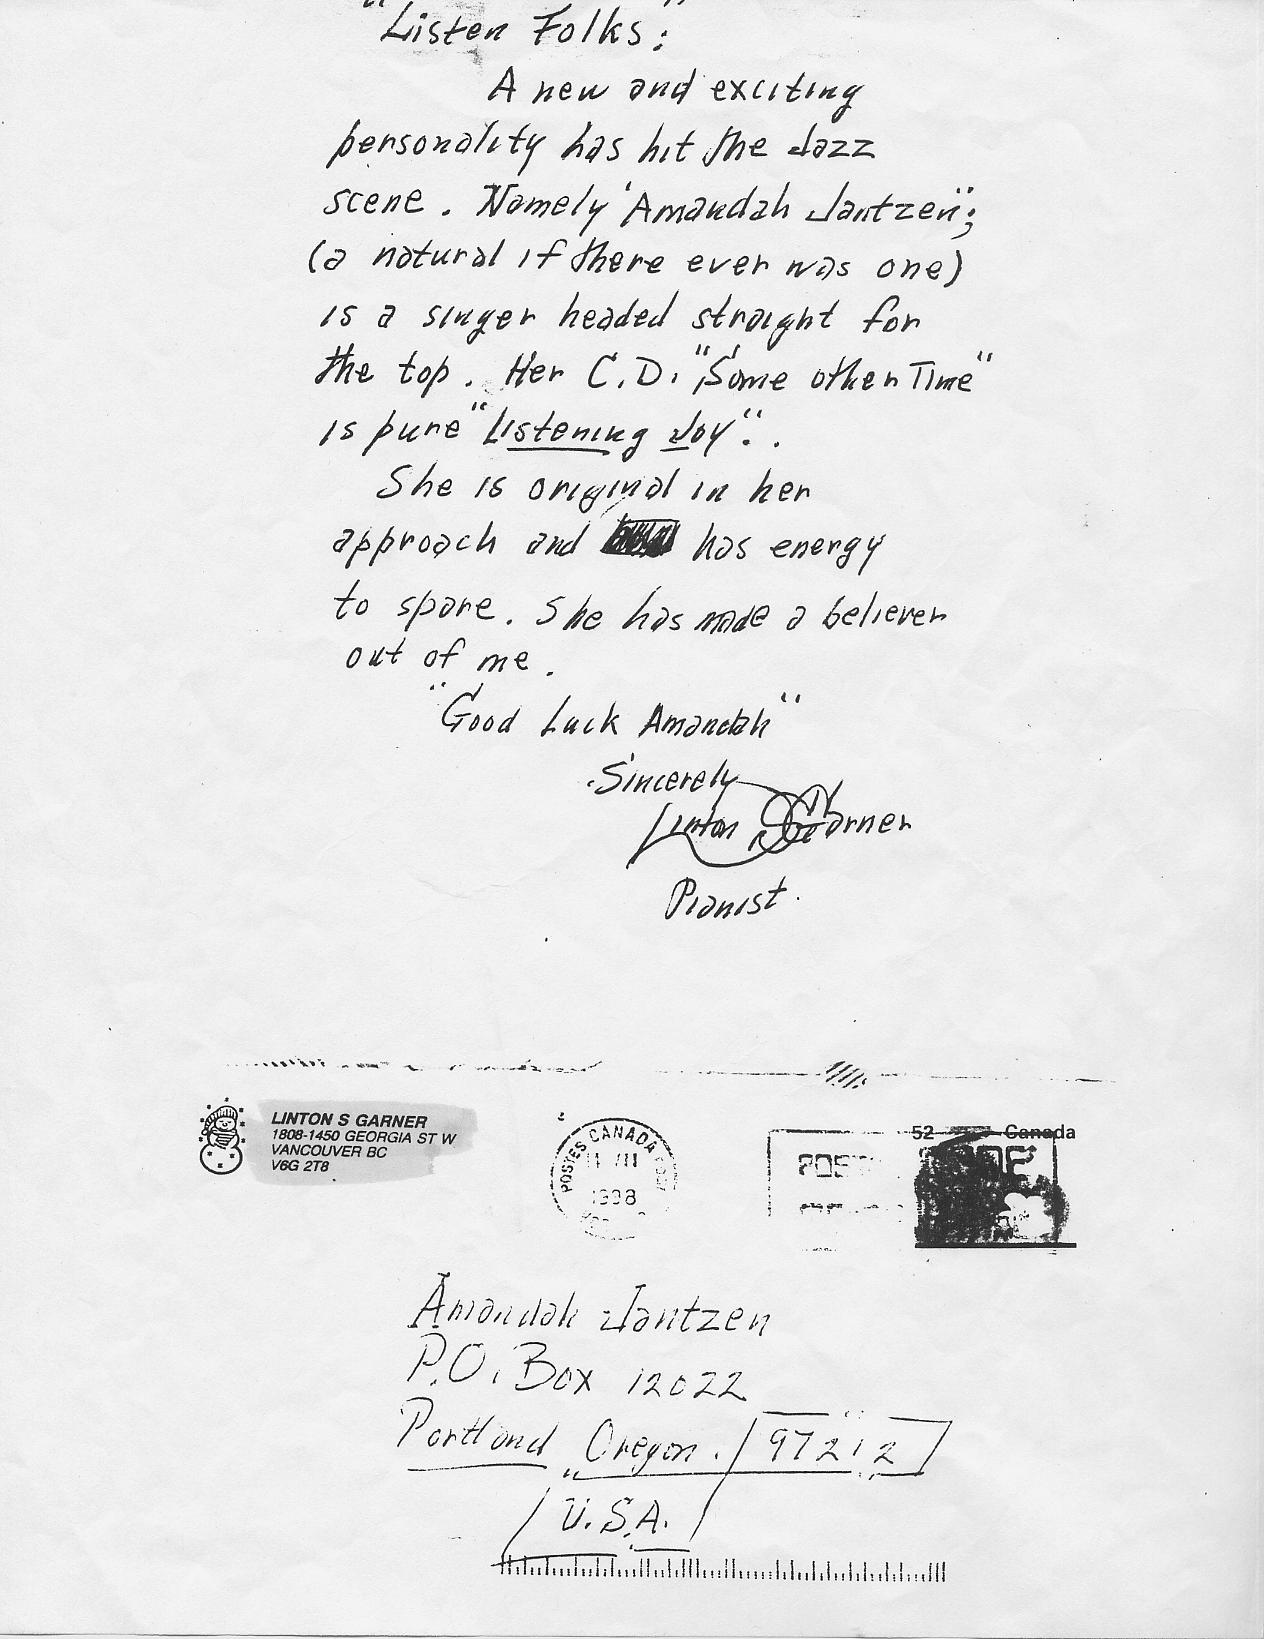 "Listen Folks:"
A new and exciting
personality has hit the Jazz
scene. Namely 'Amandah Jantzen";
(a natural if there ever was one)
is a singer headed straight for
the top. Her C.D. "Some other Time"
is pure "Listening Joy".
She is original in her
approach and has energy
to spare. She has made a believer
out of me.
"Good Luck Amandah"
Sincerely
Linton S Garner
Pianist.
LINTON S GARNER
1808-1450 GEORGIA ST W
VANCOUVER BC
V6G 2T8
POSTES CANADA
1998
52 Canada
Amandah Jantzen
P.O. Box 12022
Portland Oregon. 97212
U.S.A.